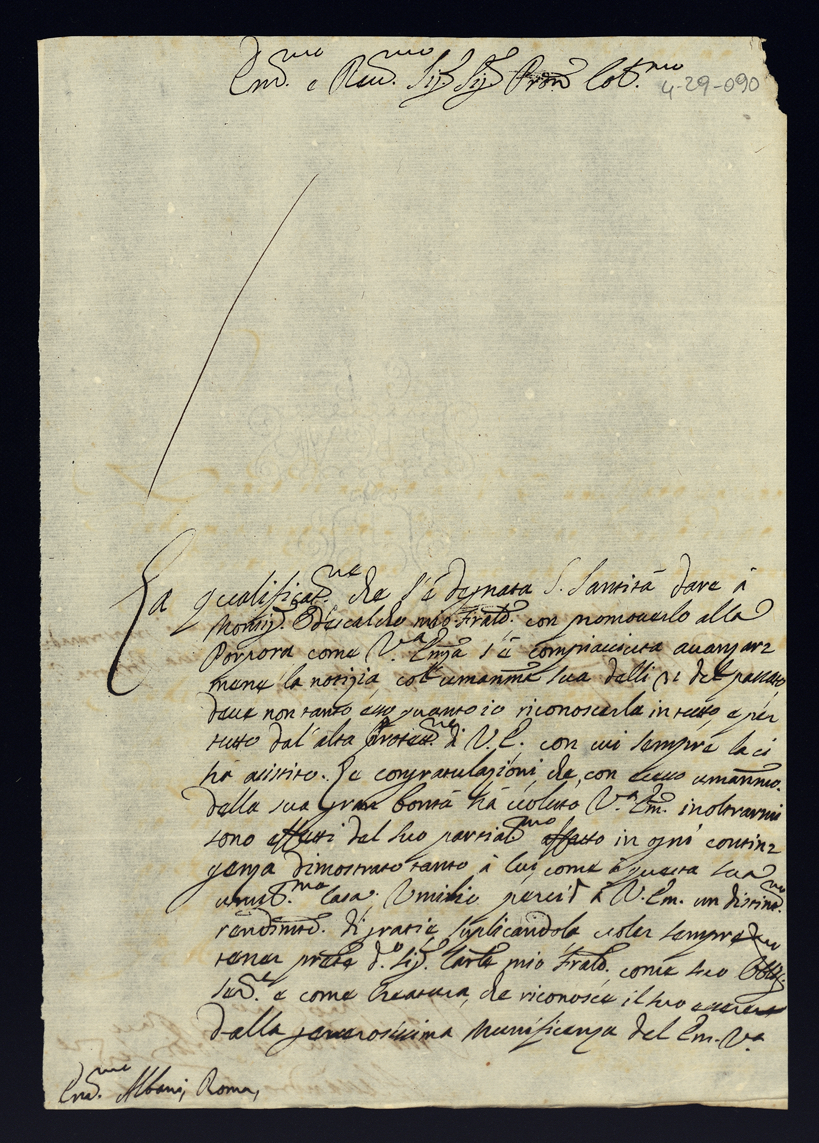 Em.mo e Reu.mo Sig.r Sig.r Pron Col.mo
4-29-090
La qualificat.ne che s'è degnata S. Santità dare à
Monsig.r Odescalchi mio Fratel. con promouerlo alla
Porpora come V.a Em.za s'è compiacciuta auanzar=
mene la notizia coll' umaniss.ma sua delli 21 del passato
deue non tanto esso quanto io riconoscerla in tutto e per
tutto dal' alta Protez.ne di V. E. con cui sempre la ci
ha assistito. Le congratulazioni, che con umaniss.mo
della sua gran bontà hà uoluto V.a Em. inoltrarmi
sono effetti del suo parzial.mo affetto in ogni contin=
genza dimostrato tanto à lui, come à questa sua
umil.ma Casa. Umilio perciò à V. Em. un distint.mo
rendim.to di grazie suplicandola uoler sempre
tener prete d.o Sig.r mio Fratel. come suo Obblig.mo
Ser.re e come Creatura, che riconosce il suo essere
dalla generosissima Munificenza del Em. V.a
Em.mo Albani, Roma,